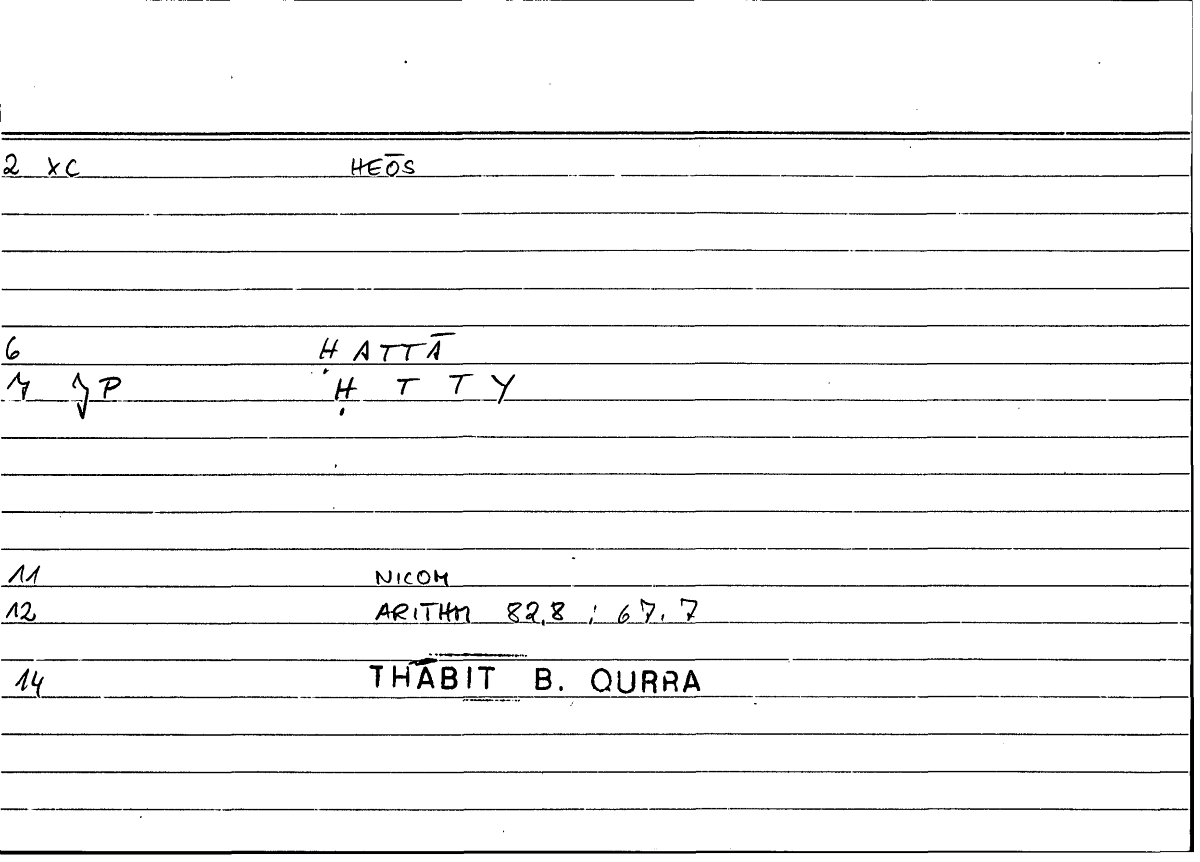 2 XC HEŌS
6 ḤATTĀ
7 P Ḥ T T Y
11 NICOM
12 ARITHM 82,8 ; 67.7
14 THĀBIT B. QURRA